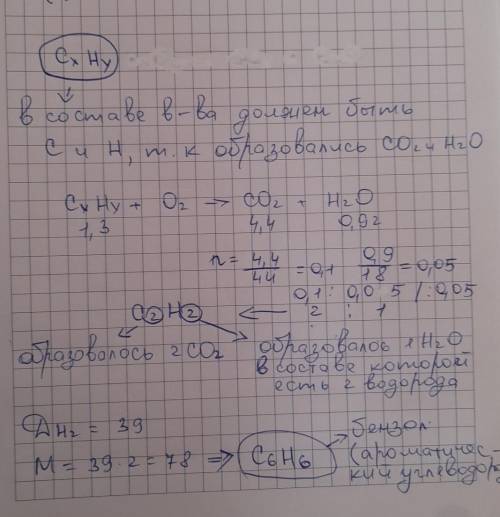 CxHy
в составе в-ва должен быть
C и H, т.к образовались CO2 и H2O
CxHy + O2 → CO2 + H2O
1,3 4,4 0,92
n = 4,4/44 = 0,1 0,9/18 = 0,05
0,1 : 0,05 /:0,05
C2H2 ← 2 : 1
образовалось 2CO2
образовалос 1H2O
в составе которой
есть 2 водорода
DH2 = 39
M = 39·2 = 78 ⇒ C6H6
бензол
(ароматичес-
кий углеводор